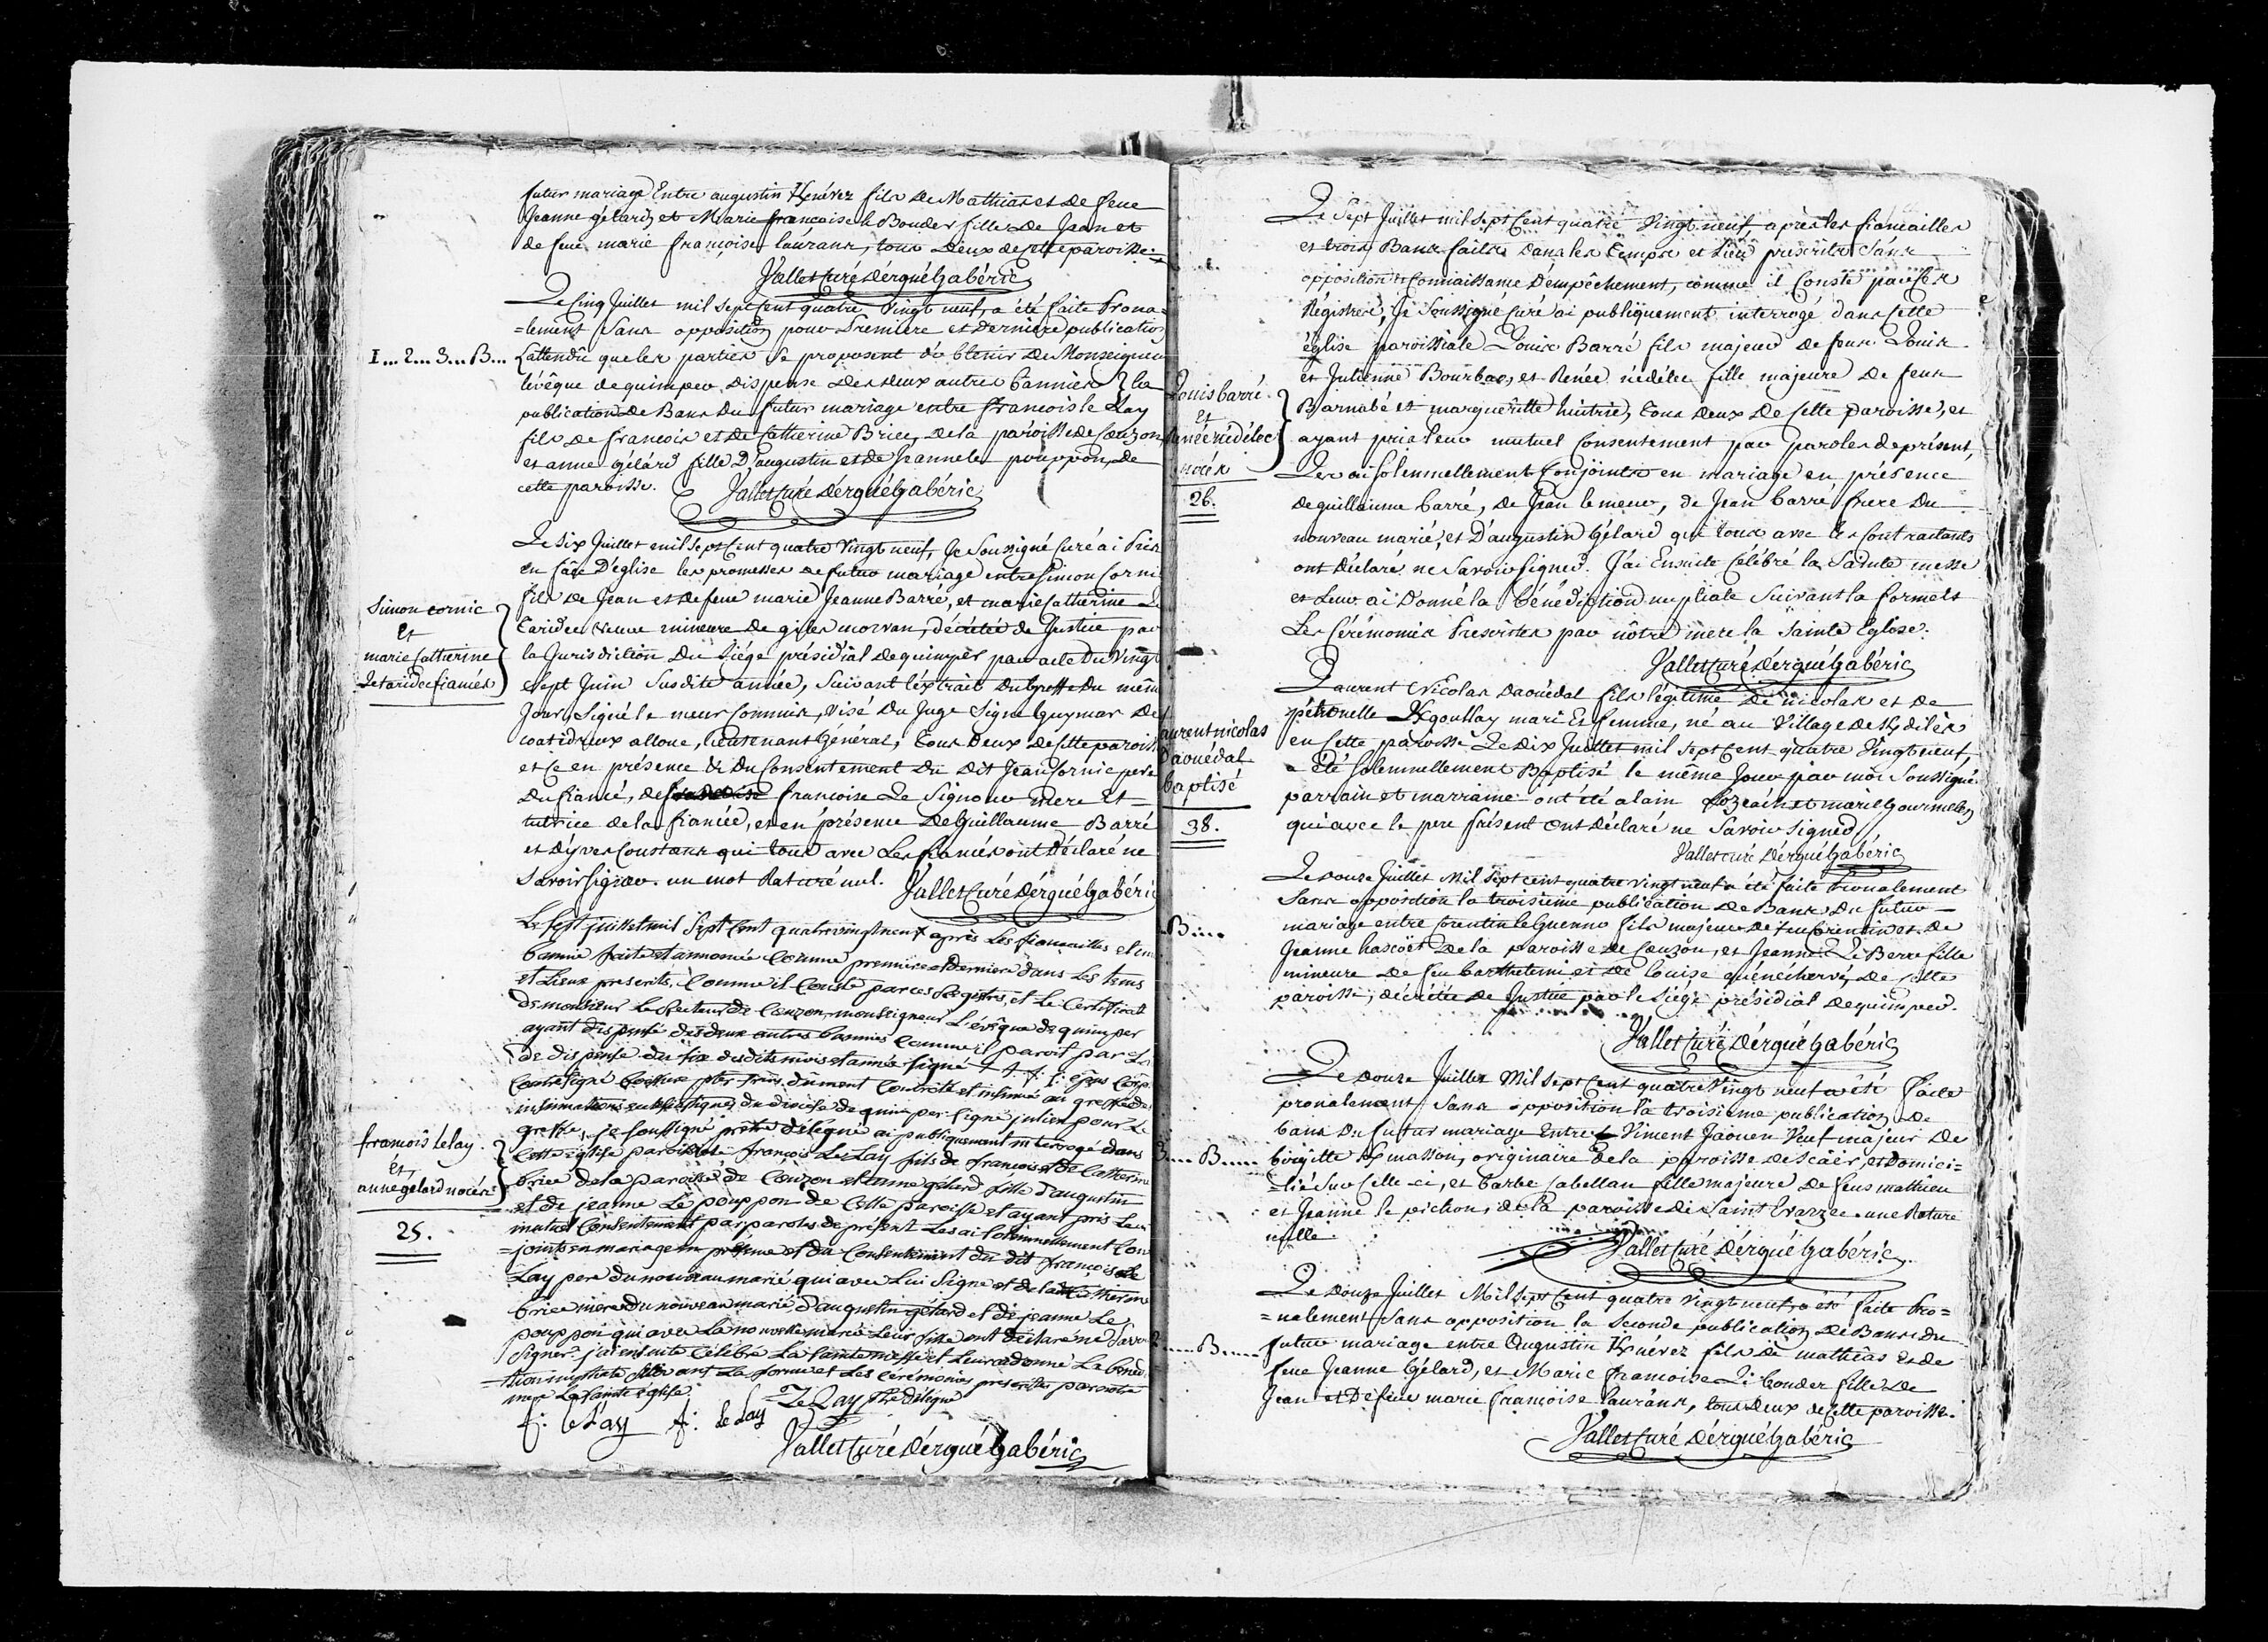 futur mariage Entre augustin Kenévez fils De Mathias et De feue
Jeanne gélard, et Marie françoise le Bouder fille De Jean et
de feue marie françoise laurans, tous Deux de cette paroisse.
Vallet Curé D'ergué Gabéric
Le Cinq Juillet mil sept Cent quatre Vingt neuf, a été faite Prona=
=lement Sans opposition pour Premiere et Derniere publication
I... 2... 3... B... (attendu que les parties Se proposent d'obtenir De Monseigneur
lévêque de quimper Dispense Des deux autres bannies) la
publication De Bans Du futur mariage entre francois le Lay
fils de francois et De Catherine Brice, De la paroisse de Cauzon,
et anne gélard fille D'augustin et de Jeanne le pouppon, De
cette paroisse. Vallet Curé D'ergué Gabéric
Le Six Juillet mil Sept Cent quatre Vingt neuf, Je Soussigné Curé ai Pris
en face D'eglise les promesses de futur mariage entre Simon Cornic
Simon cornic
Et
marie Catherine
Le taridec fiancés
fils De Jean et De feue marie Jeanne Barré, et marie Catherine Le
Taridec Veuve mineure De giles morvan, décrétée de Justice par
la Jurisdiction Du Siége présidial De quimper par acte Du Vingt
Sept Juin Susdite année, Suivant l'extrait Du greffe Du même
Jour, Signé le meur Commis, Visé Du Juge Signé Guymar De
coatidreux alloue, Lieutenant Général, tous Deux De cette paroisse
et Ce en présence & Du Consentement Du Dit Jean Cornic pere
Du fiancé, De francoise Le Signour mere Et
tutrice de la fiancée, et en présence De Guillaume Barré
et D'yves Constans qui tous avec Les fiancés ont Déclaré ne
Savoir Signer. un mot Raturé nul. Vallet Curé D'ergué Gabéric
Le Sept juillet mil Sept Cent quatrevingtneuf après Les fiancailles et une
bannie faite et annoncée Comme premiere et Derniere dans Les tems
et Lieux prescrits, Comme il Conste par ces Registres, et Le Certificat
De monsieur Le Recteur De Cauzon, monseigneur L'évêque de quimper
ayant dispensé des deux autres bannies Comme il paroit par La
de dispense du six desdits mois et année signé
Contresigné dûment Controllé et insinué au greffe des
insinuations ecclésiastiques du diocèse de quimper signé julien pour Le
greffe, je soussigné prêtre délégué ai publiquement interrogé dans
francois le lay
Et
anne gelard nocés
25.
Cette église paroissiale francois Le Lay fils de francois et De Catherine
brice de la paroisse de Cauzon et anne gélard fille d'augustin
et de jeanne Le pouppon de Cette paroisse et ayant pris Leur
mutuel Consentement par paroles de présent Les ai solemnellement Con
=joints en mariage en présence et du Consentement du dit francois Le
Lay pere du nouveau marié qui avec Lui Signe et de la dite Catherine
brice mere du nouveau marié d'augustin gélard et de jeanne Le
pouppon qui avec La nouvelle mariée Leur fille ont déclaré ne Savoir
Signer. j'ai ensuite Célébré La Sainte messe et Leur ai donné La béné
=diction nuptiale Suivant La forme et Les Cérémonies prescrites par notre
mere La Sainte église.
Le Lay Ptre délégué
f: le Lay f: le Lay
Vallet Curé D'ergué Gabéric
Le Sept Juillet mil Sept Cent quatre Vingt neuf, après les fiancailles
et trois Bans faits Dans les temps et Lieu prescrits Sans
opposition et Connaissance D'empêchement, comme il Conste par Ces
Régistres, Je Soussigné Curé ai publiquement interrogé dans Cette
église paroissiale Louis Barré fils majeur de feux Louis
Louis barré
et
Renée nédélec
nocés
26.
et Julienne Bourbao, et Renée nédélec fille majeure De feux
Barnabé et marguerite huitric, tous deux De Cette paroisse, et
ayant pris leur mutuel Consentement par paroles de présent,
Les ai Solemnellement Conjoints en mariage en présence
de guillaume barré, de Jean le meur, de Jean barré frere Du
nouveau marié, et D'augustin Gélard qui tous avec les Contractants
ont Déclaré ne Savoir Signer. J'ai Ensuite Célébré la Sainte messe
et Leur ai Donné la bénédiction nuptiale Suivant la forme et
Les Cérémonies Prescrites par nôtre mere la Sainte Eglise.
Vallet Curé D'ergué Gabéric
Laurent Nicolas Daouédal fils légitime De nicolas et de
pétronelle Kgoullay mari Et femme, né au Village de Kdilès
aurent nicolas
Daouédal
baptisé
38.
en Cette paroisse Le Dix Juillet mil Sept Cent quatre Vingt neuf,
a été Solemnellement Baptisé le même Jour par moi Soussigné
parrain et marraine ont été alain et marie Gourmelen
qui avec le pere présent ont déclaré ne Savoir Signer
Vallet curé D'ergué Gabéric
Le Douze Juillet Mil Sept cent quatre vingt neuf a été faite Pronalement
Sans opposition la troisieme publication De Bans Du futur
B...
mariage entre Corentin le Guenno fils majeur De feu Corentin et De
Jeanne hascöet De la paroisse De Cauzon, et Jeanne Le Berre fille
mineure De feu barthelemi et De louise quénéhervé, De Cette
paroisse, décrétée De Justice par le Siége présidial De quimper.
Vallet Curé D'ergué Gabéric
Le Douze Juillet Mil Sept Cent quatre Vingt neuf a été faite
pronalement Sans opposition la troisieme publication De
bans Du futur mariage Entre Vincent Jaouen Veuf majeur De
3.... B.... birgitte Kmasson, originaire De la paroisse De Scäer, et Domici=
=lié Sur Celle-ci, et barbe Cabellan fille majeure De feus mathieu
et Jeanne le pichon, de la paroisse De Saint Evarzec. une Rature
nulle.
Vallet Curé D'ergué Gabéric
Le Douze Juillet Mil Sept Cent quatre Vingt neuf, a été faite Pro=
=nalement Sans opposition la Seconde publication De Bans du
2.... B.... futur mariage entre Augustin Kenévez fils De mathias Et de
feue Jeanne Gélard, et Marie francoise Le bouder fille De
Jean et De feue marie françoise laurans, tous Deux de Cette paroisse.
Vallet Curé D'ergué Gabéric